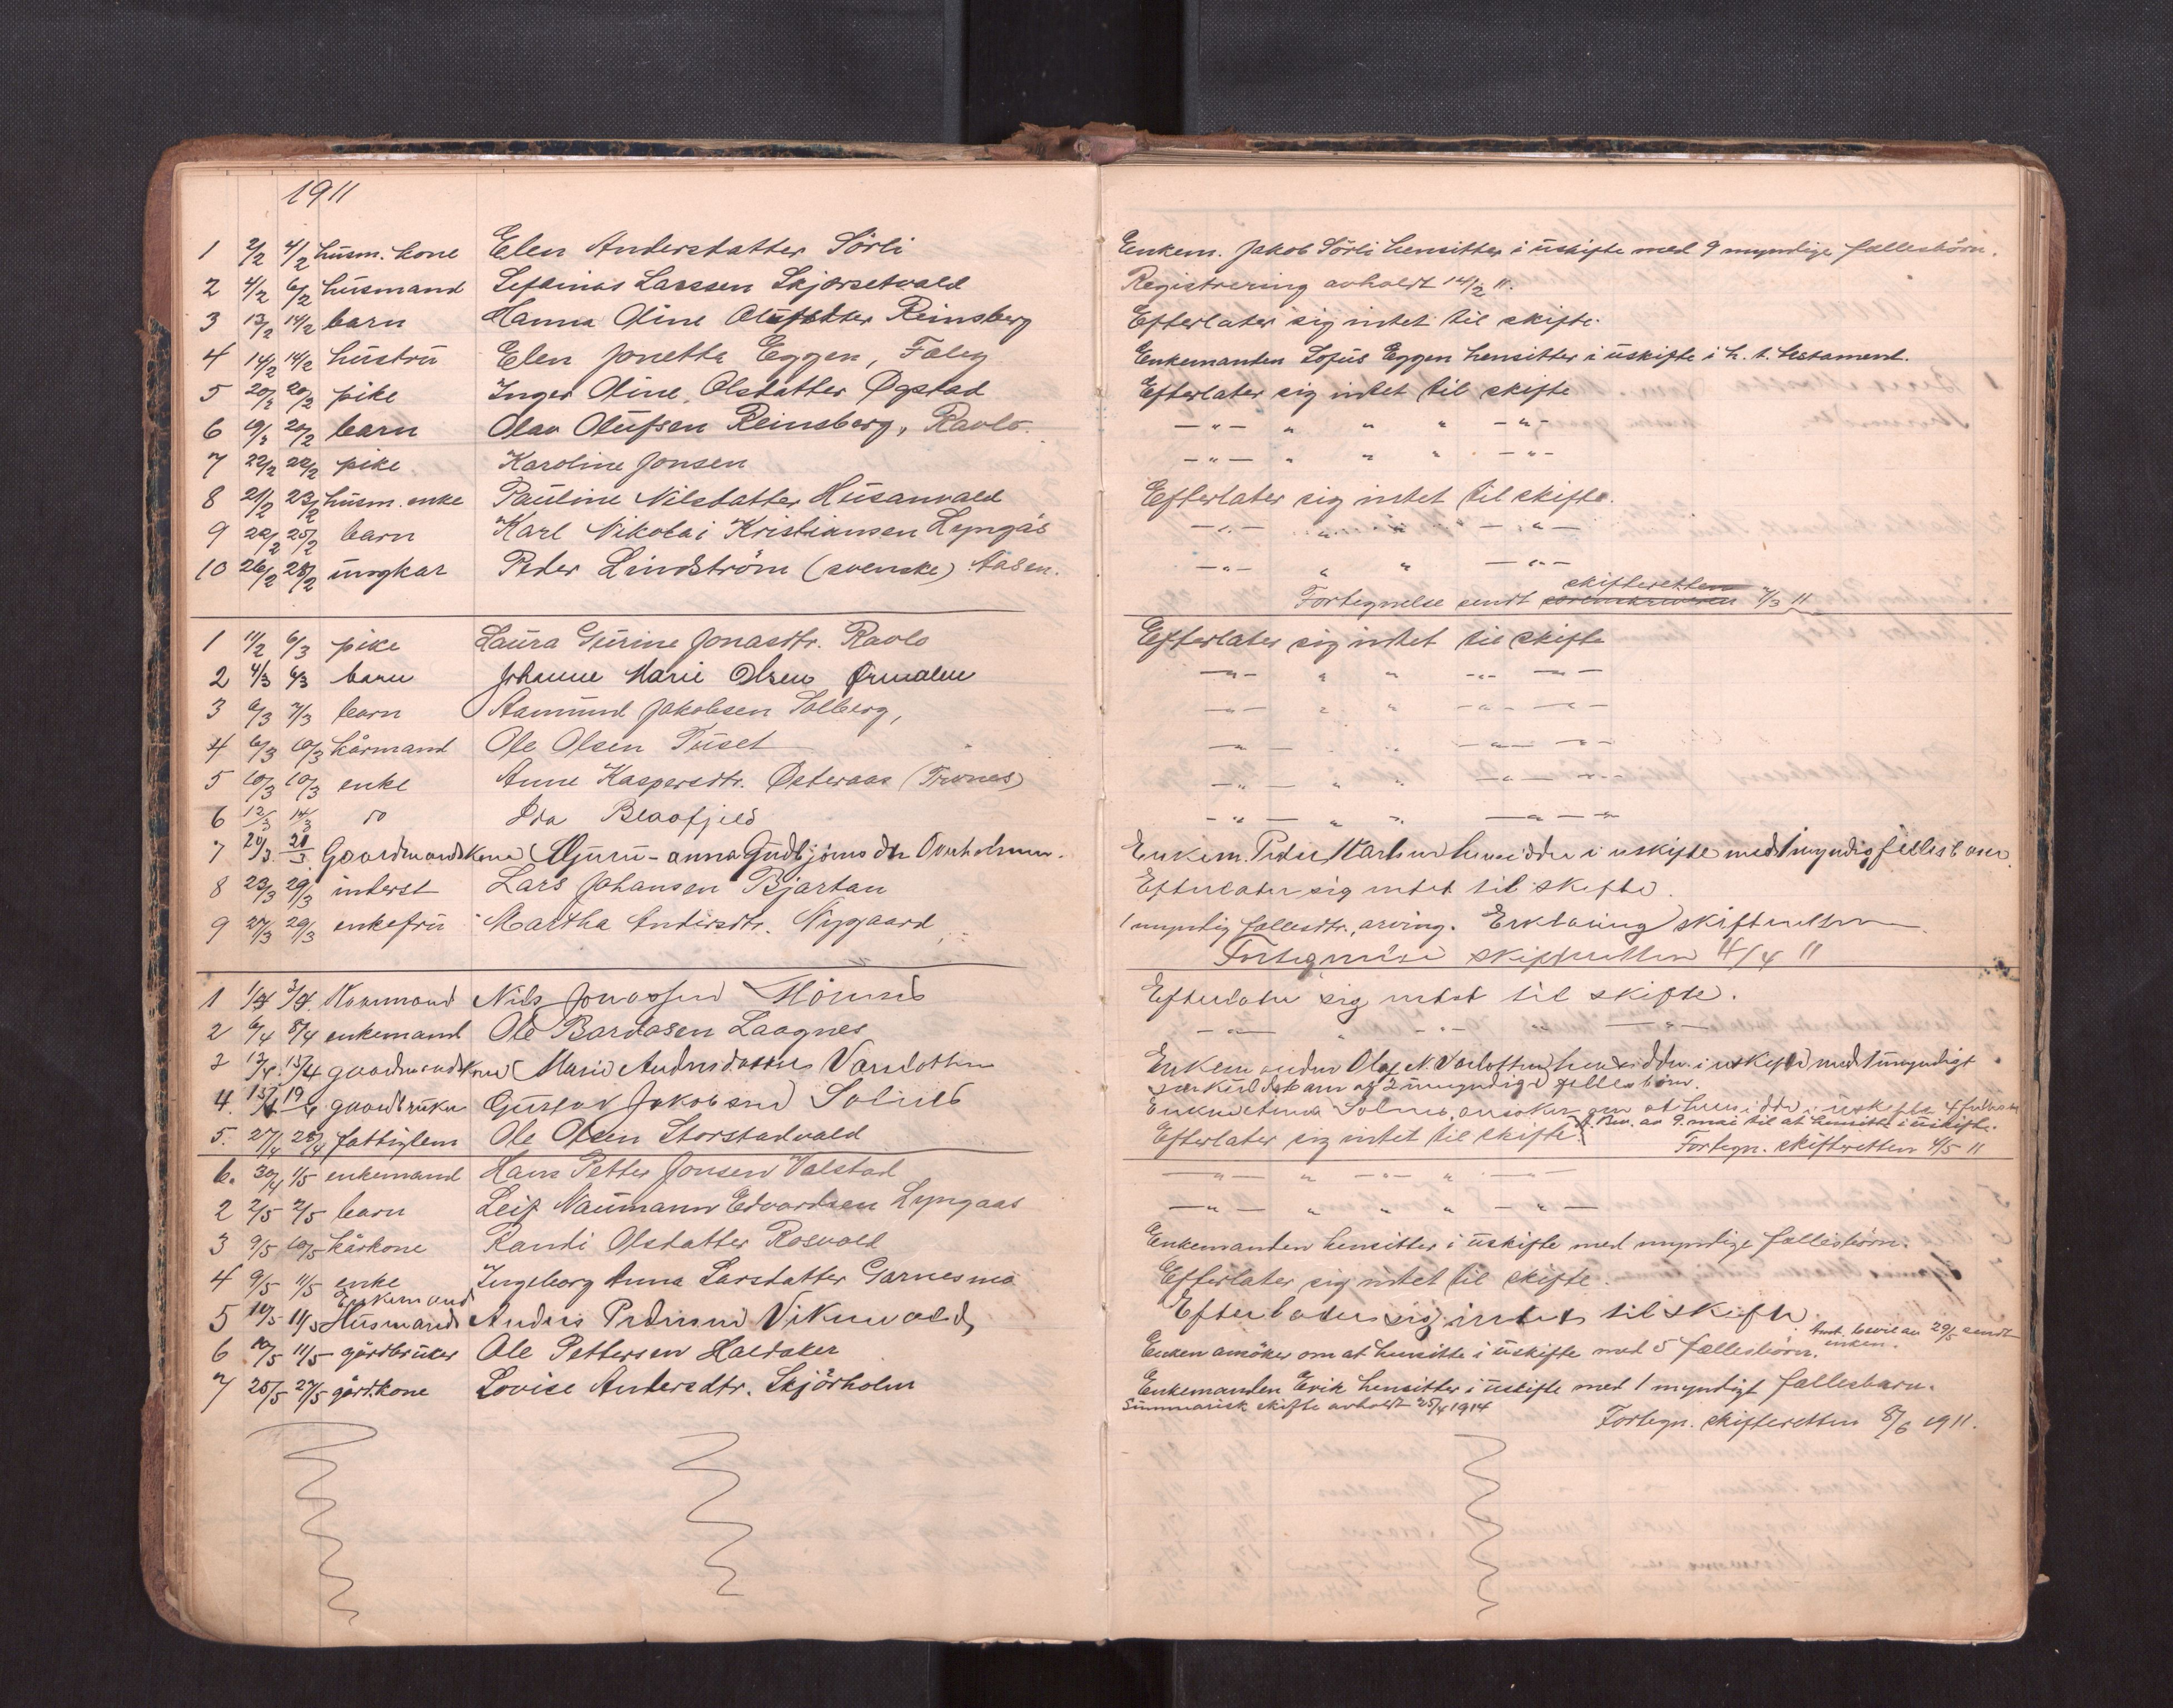 1911
1 2/2 4/2 husm. kone Elen Andersdatter Sörli Enkem. Jakob Sörli hensitter i uskifte med 9 myndige fællesbörn.
2 4/2 6/2 husmand Larssen Skjørsetvald Registrering avholdt 14/2 11.
3 13/2 14/2 barn Hanna Oline Olufsdtter Reinsberg Efterlater sig intet til skifte.
4 14/2 14/2 hustru Elen Jonetta Eggen, Faley Enkemanden Lofus Eggen hensitter i uskifte i h. t. testament.
5 20/2 20/2 pike Inger Oline Olsdatter Øgstad Efterlater sig intet til skifte
6 19/2 20/2 barn Olav Olufsen Reinsberg, Ravlo — " — " " " — " —
7 22/2 22/2 pike Karoline Jonsen — " — " " " — " —
8 21/2 23/2 husm. enke Pauline Nilsdatter Husanvald Efterlater sig intet til skifte.
9 22/2 25/2 barn Karl Nikolai Kristiansen Lyngås — " — " " — " —
10 26/2 28/2 ungkar Peder Lindström (svenske) Aasen. — " — " " — " —
Fortegnelse sendt skifteretten 7/3 11
1 11/2 6/3 pike Laura Gurine Jonasdtr. Ravlo Efterlater sig intet til skifte
2 4/3 6/3 barn Johanne Marie Olsen Ørmelen — " — " " — " — " —
3 6/3 7/3 barn Aamund Jakobsen Solberg, — " — " " — " — " —
4 6/3 10/3 kårmand Ole Olsen Tuset — " — " " — " — " —
5 10/3 10/3 enke Anne Kaspersdtr. Østeraas (Trones) — " — " " — " — " —
6 12/3 14/3 do Ida Blaafjeld — " — " " — " — " —
7 20/3 21/3 Gaardmandskone Guru-anna Gudbjörnsdtr Overholmen. Enkem. Peder Martin hensidder i uskifte med 1 myndig fellesbarn.
8 23/3 29/3 inderst Lars Johansen Bjartan Efterlater sig intet til skifte.
9 27/3 29/3 enkefru Martha Andersdtr. Nygaard 1 myndig fællesdtr., arving. Erklæring skifteretten
Fortegnelse skifteretten 4/4 11
1 1/4 3/4. Kaarmand Nils Jonassen Efterlater sig intet til skifte.
2 6/4 8/4 enkemand Ole Bardosen Laagnes — " — " — " — " — " —
3 13/4 15/4 gaardmandskone Marie Andersdatter Vordotten Enkemanden Olaf N. Vordotten hensidder i uskifte med 1 umyndigt
særkuldsbarn og 2 umyndige fellesbörn.
4. 15/4 19/4 gaardbruker Gustav Jakobsen Solnes Enken Anna Solnes ansöker om at hensidde i uskifte 4 fellesb
Bev. av 9. mai til at hensitte i uskifte.
5. 27/4 28/4 fattiglem Ole Olsen Storstadvald Efterlater sig intet til skifte. Fortegn. skifteretten 4/5 11
6. 30/4 1/5 enkemand Hans Petter Jonsen Valstad — " — " " — " — " —
2 2/5 2/5 barn Leif Naumann Edvardsen Lyngaas — " — " " " — " —
3 9/5 10/5 kårkone Randi Olsdatter Rosvold Enkemanden hensitter i uskifte med myndige fællesbörn.
4 9/5 11/5 enke Ingeborg Anna Larsdatter Garnesmo Efterlater sig intet til skifte.
Enkemand
5 10/5 11/5 Husmand Anders Pedersen Vikenvald Efterlader sig intet til skifte.
6 10/5 11/5 gårdbruker Ole Pettersen Haldaker Enken ansöker om at hensitte i uskifte med 5 fællesbörn. bevil av 29/5 sendt enken.
7 25/5 27/5 gårdkone Lovise Andersdtr. Skjörholm Enkemanden Erik hensitter i uskifte med 1 myndigt fællesbarn.
Summarisk skifte avholdt 25/4 1914 Fortegn. skifteretten 8/6 1911.